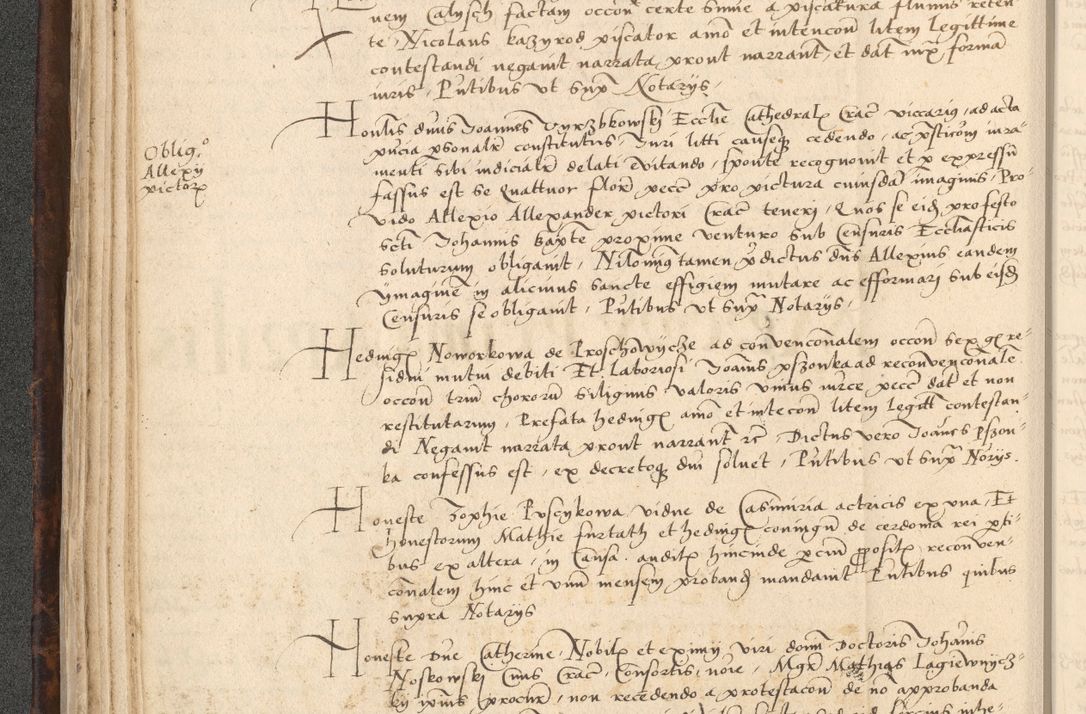 nem Calysch factam occoñ certe sume a piscatura flumis reten
te Nicolaus kazyrod piscator aniõ et intencoñ litem legittime
contestandi negavit narrata prout narrant, et dat iux formã
iuris, Pñtibus vt supᵃ Notarijs,
Obligᵒ
Allexij
pictorȝ
Honlis dnus Joannes Vyrzbkowskj Ecclie Cathedralȝ Crac viccariꝯ, ad acta
pñcia psonalr constitutus, Juri litti causeqȝ cedendo, ac
menti sibi iudicialr delati evitando, sponte recognovit et p expressũ
fassus est se Quattuor florȝ pecc pro pictura cuiusdã imaginis, Pro-
vido Allexio Allexander pictori Crac teneri, Quos se eidȝ pro festo
scti Johannis bapte proxime venturo sub Censuris Ecclasticis
soluturum obligavit, Nilominꝯ tamen pdictus dñs Allexius eandem
ymaginē in alicuius sancte effigiem mutare ac efformarj sub eisdȝ
Censuris se obligavit, Pñtibus vt supᵃ Notarijs,
Hedwigȝ Noworkowa de Proschowycze ad convenconalem occoñ sex gȝ re-
sidui mutui debiti Et laboriosi Joannis pszonka ad reconvenconale
occoñ triũ chororũ siliginis valoris unius mrce pecc dat et non
restitutarum, Prefata hedwigȝ aniõ et intecoñ litem legitt contestan-
di Negavit narrata prout narrant rc, Dictus vero Joanes Pszon-
ka confessus est, ex decretoqȝ dni soluet, Pñtibus vt supᵃ Norijs.
Honeste Zophie Puscykowa vidue de Casimiria actricis ex una, Et
honestorum Mathie furtath et hedwigȝ coniugũ de cerdoma rei pti-
bus ex altera, in Causa, auditȝ hincinde pciũ ppositȝ reconven-
conalem hinc et vnũ mensem probandȝ mandavit Pntibus quibus
supra Notarijs
Honeste Dne Catherine, Nobilȝ et eximij viri domi Doctoris Johanis
Noskowskj Civis Crac, Consortis, noie, Mgr Mathias Lagiewnycz-
kij ipius procur, non recedendo a protestacoñ de nõ approbanda